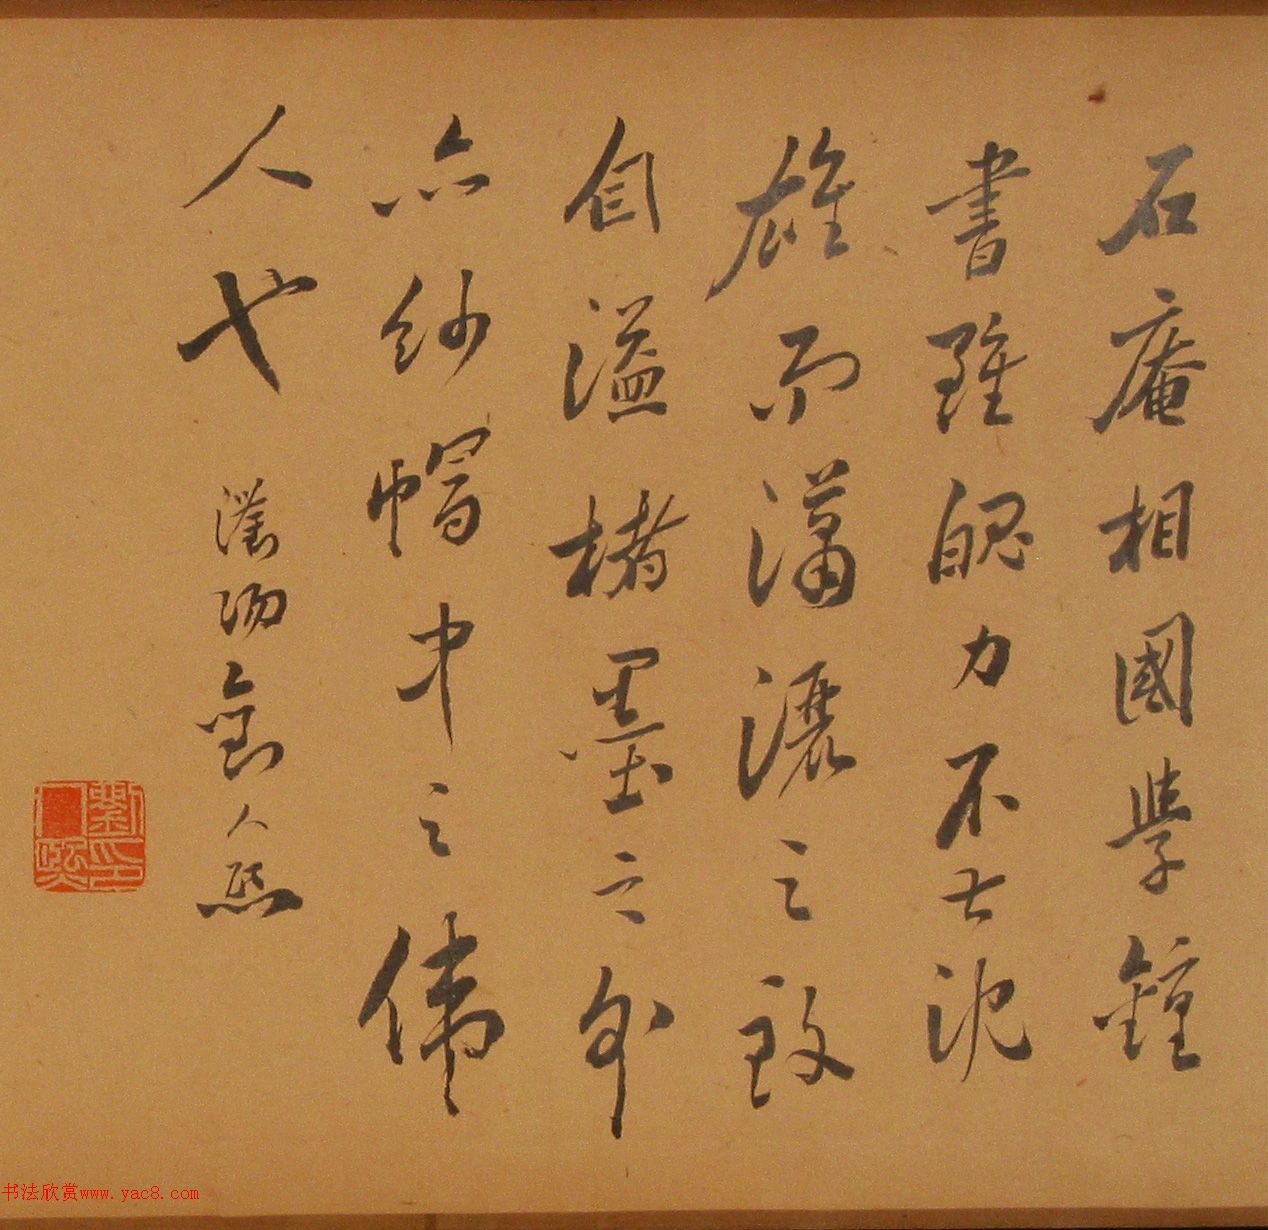 石庵相國學鐘
書雖魄力不沈
雄而瀟灑之致
自溢楮墨之外
亦紗帽中之偉
人也 瀏陽劉人熙
劉人熙印
书法欣赏www.yac8.com